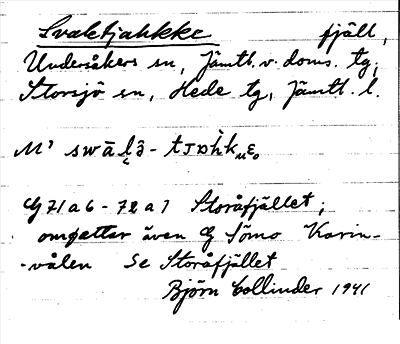 Svaletjahkke fjäll,
Undersåkers sn, Jämtl. v. doms. tg;
Storsjö sn, Hede tg, Jämtl. l.
M' swāl̨ʒ̄ -
G 71 a 6 - 72 a 7 Storåfjället;
omfattar även G Sömo Karin-
-vålen Se Storåfjället
Björn Collinder 1941